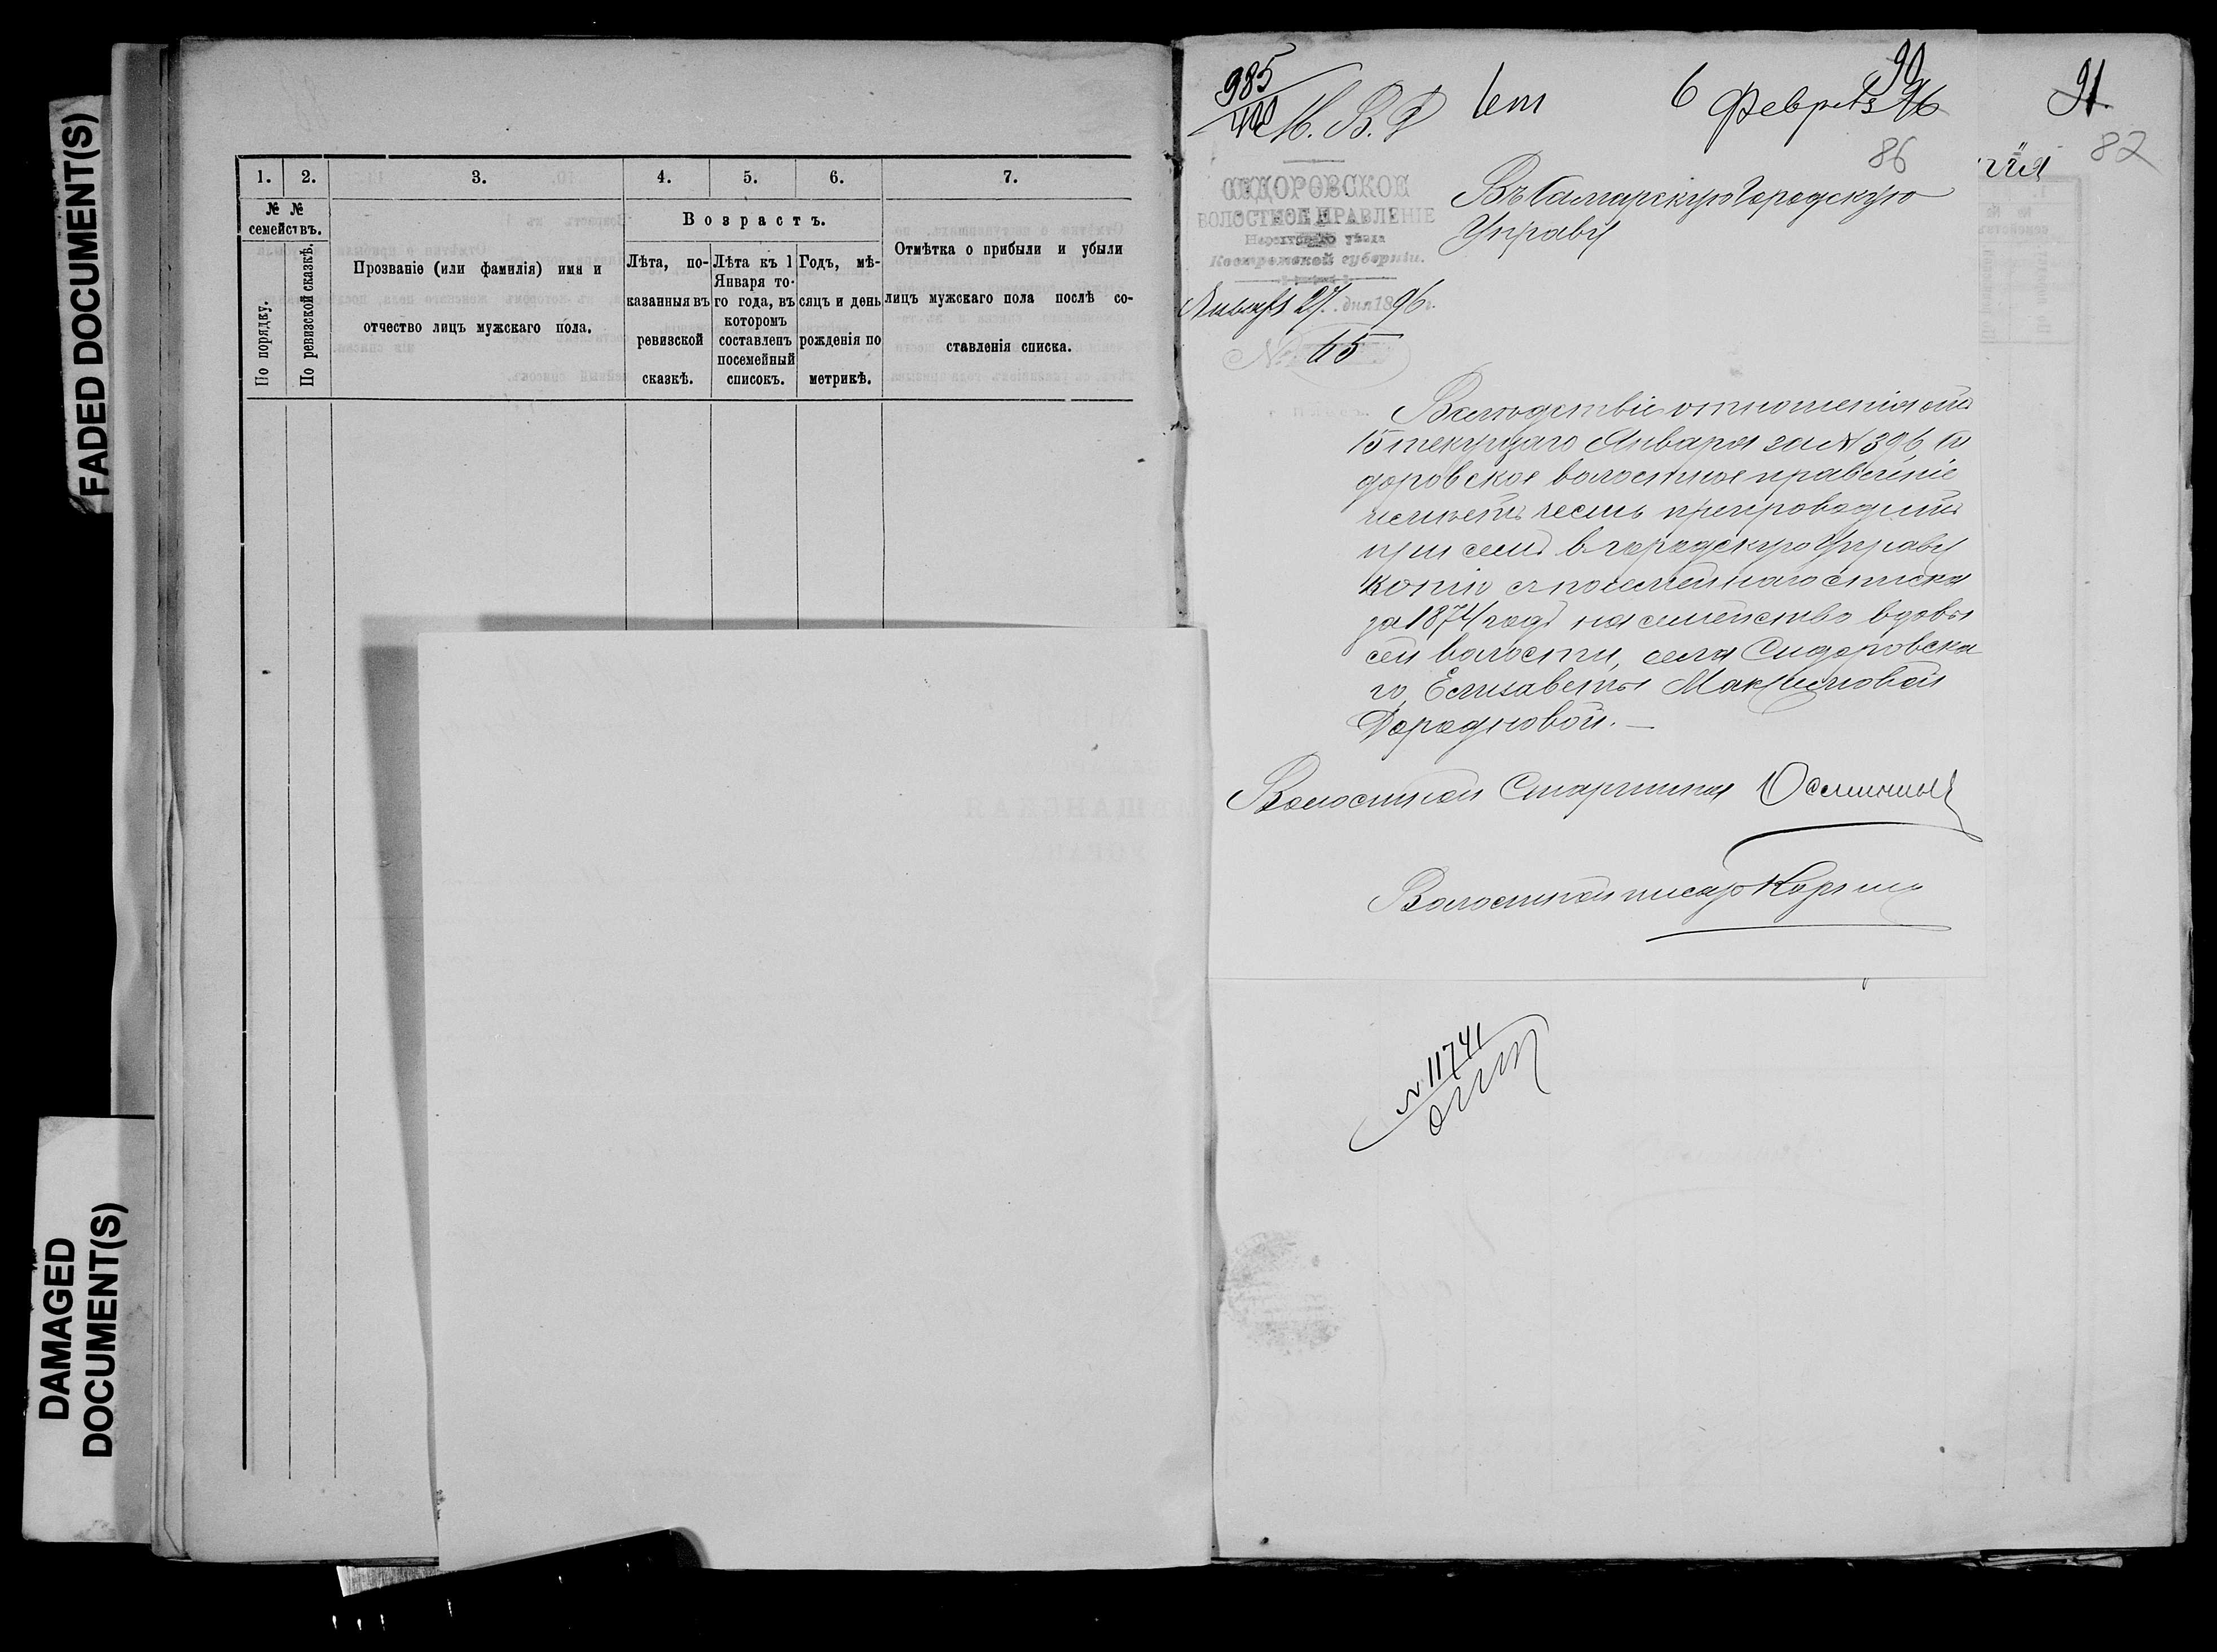 FADED DOCUMENT(S)
DAMAGED
DOCUMENT(S)
1. 2. 3. 4. 5. 6. 7.
№ №
семействъ.
По порядку.
По ревизской сказкѣ.
Прозваніе (или фамилія) имя и
отчество лицъ мужскаго пола.
Возрастъ.
Лѣта, по-
казанныя въ
ревизской
сказкѣ.
Лѣта къ 1
Января то-
го года, въ
которомъ
составленъ
посемейный
списокъ.
Годъ, мѣ-
сяцъ и день
рожденія по
метрикѣ.
Отмѣтка о прибыли и убыли
лицъ мужскаго пола послѣ со-
ставленія списка.
985
М. В. Д
1 ст
6 Февр 96
90
91
86
82
СИДОРОВСКОЕ
ВОЛОСТНОЕ ПРАВЛЕНІЕ
Нерехтскаго уѣзда
Костромской губерніи.
Января 27 дня 1896 г.
№ 65
Въ Самарскую Городскую
Управу
Вслѣдствіе отношенія отъ
15 текущаго Января за № 396, Си
доровское волостное правленіе
имѣетъ честь препроводить
при семъ в городскую Управу
копію с посемейнаго списка
за 1874 годъ на семейство вдовы
сей волости, села Сидоровска
го, Елизаветы Максимовой
Дородновой. —
Волостной Старшина
Волостной писарь
№ 11741